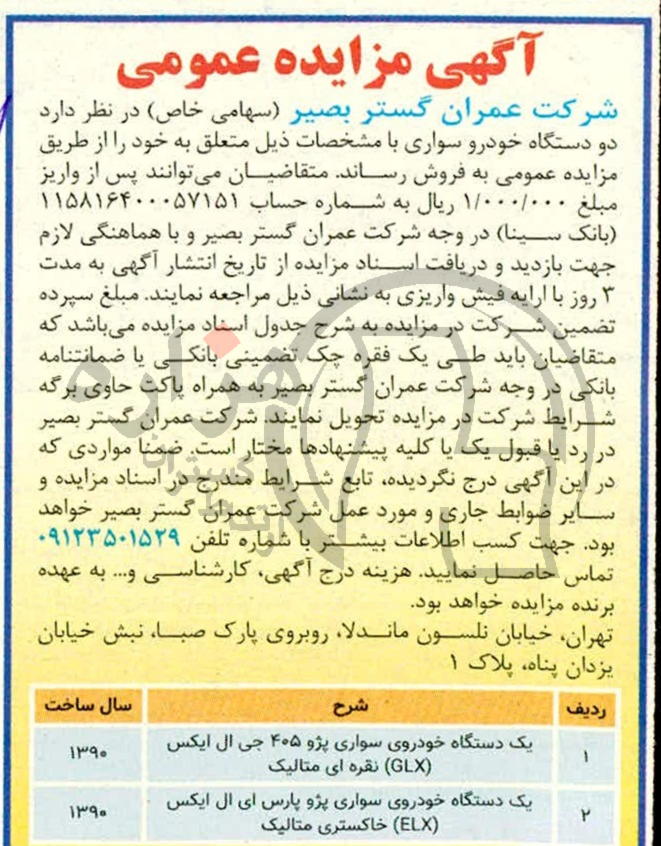 آگهی مزایده عمومی
شرکت عمران گستر بصیر (سهامی خاص) در نظر دارد
دو دستگاه خودرو سواری با مشخصات ذیل متعلق به خود را از طریق
مزایده عمومی به فروش رساند. متقاضیان می‌توانند پس از واریز
مبلغ ۱/۰۰۰/۰۰۰ ریال به شماره حساب ۱۱۵۸۱۶۴۰۰۰۵۷۱۵۱
(بانک سینا) در وجه شرکت عمران گستر بصیر و با هماهنگی لازم
جهت بازدید و دریافت اسناد مزایده از تاریخ انتشار آگهی به مدت
۳ روز با ارایه فیش واریزی به نشانی ذیل مراجعه نمایند. مبلغ سپرده
تضمین شرکت در مزایده به شرح جدول اسناد مزایده می‌باشد که
متقاضیان باید طی یک فقره چک تضمینی بانکی یا ضمانتنامه
بانکی در وجه شرکت عمران گستر بصیر به همراه پاکت حاوی برگه
شرایط شرکت در مزایده تحویل نمایند. شرکت عمران گستر بصیر
در رد یا قبول یک یا کلیه پیشنهادها مختار است. ضمنا مواردی که
در این آگهی درج نگردیده، تابع شرایط مندرج در اسناد مزایده و
سایر ضوابط جاری و مورد عمل شرکت عمران گستر بصیر خواهد
بود. جهت کسب اطلاعات بیشتر با شماره تلفن ۰۹۱۲۳۵۰۱۵۲۹
تماس حاصل نمایید. هزینه درج آگهی، کارشناسی و... به عهده
برنده مزایده خواهد بود.
تهران، خیابان نلسون ماندلا، روبروی پارک صبا، نبش خیابان
یزدان پناه، پلاک ۱
ردیف شرح سال ساخت
۱ یک دستگاه خودروی سواری پژو ۴۰۵ جی ال ایکس ۱۳۹۰
(GLX) نقره ای متالیک
۲ یک دستگاه خودروی سواری پژو پارس ای ال ایکس ۱۳۹۰
(ELX) خاکستری متالیک